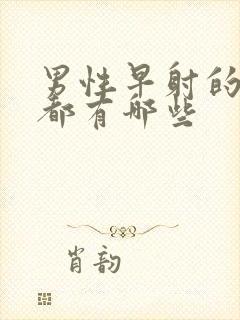 男性早射的
都有哪些
肖韵